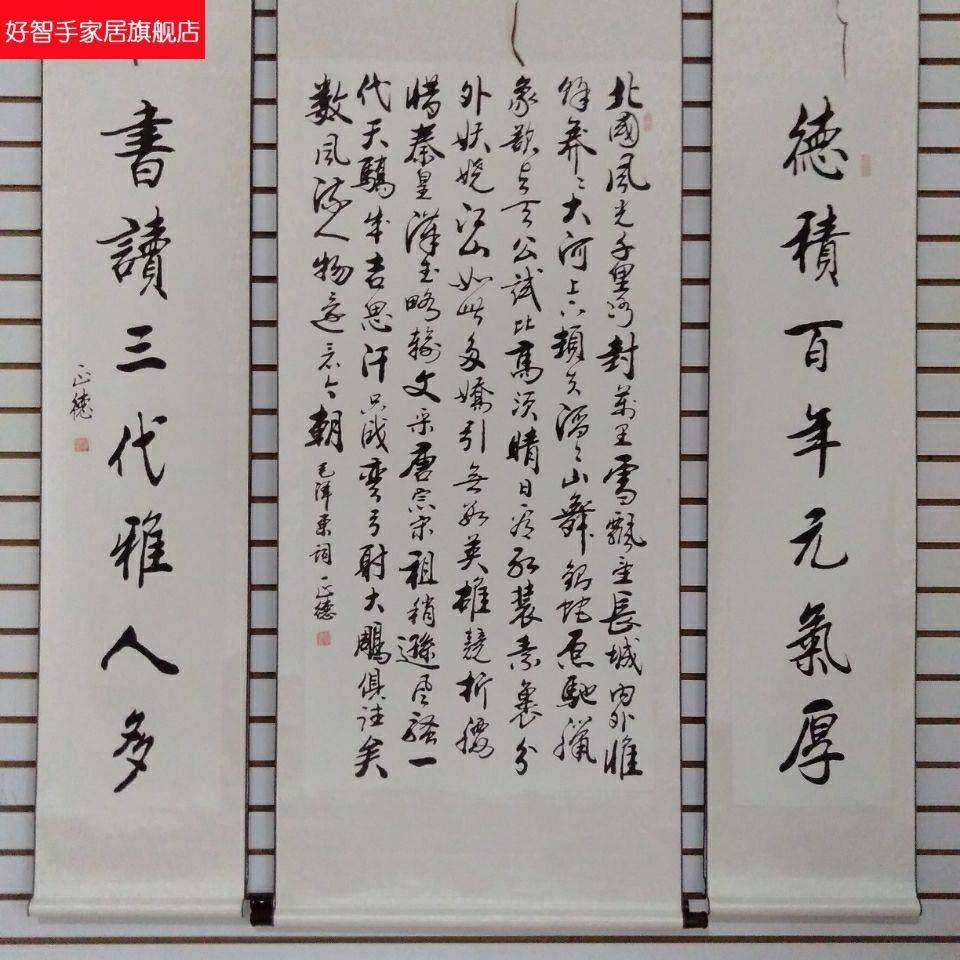 好智手家居旗舰店
德積百年元氣厚
北國風光千里冰封萬里雪飄望長城內外惟
餘莽〻大河上下頓失滔〻山舞銀蛇原馳臘
象欲与天公試比高須晴日看紅裝素裹分
外妖嬈江山如此多嬌引無數英雄競折腰
惜秦皇漢武略輸文采唐宗宋祖稍遜風騷一
代天驕成吉思汗只識彎弓射大鵰俱往矣
数風流人物還看今朝
毛澤東詞 正德
書讀三代雅人多
正德